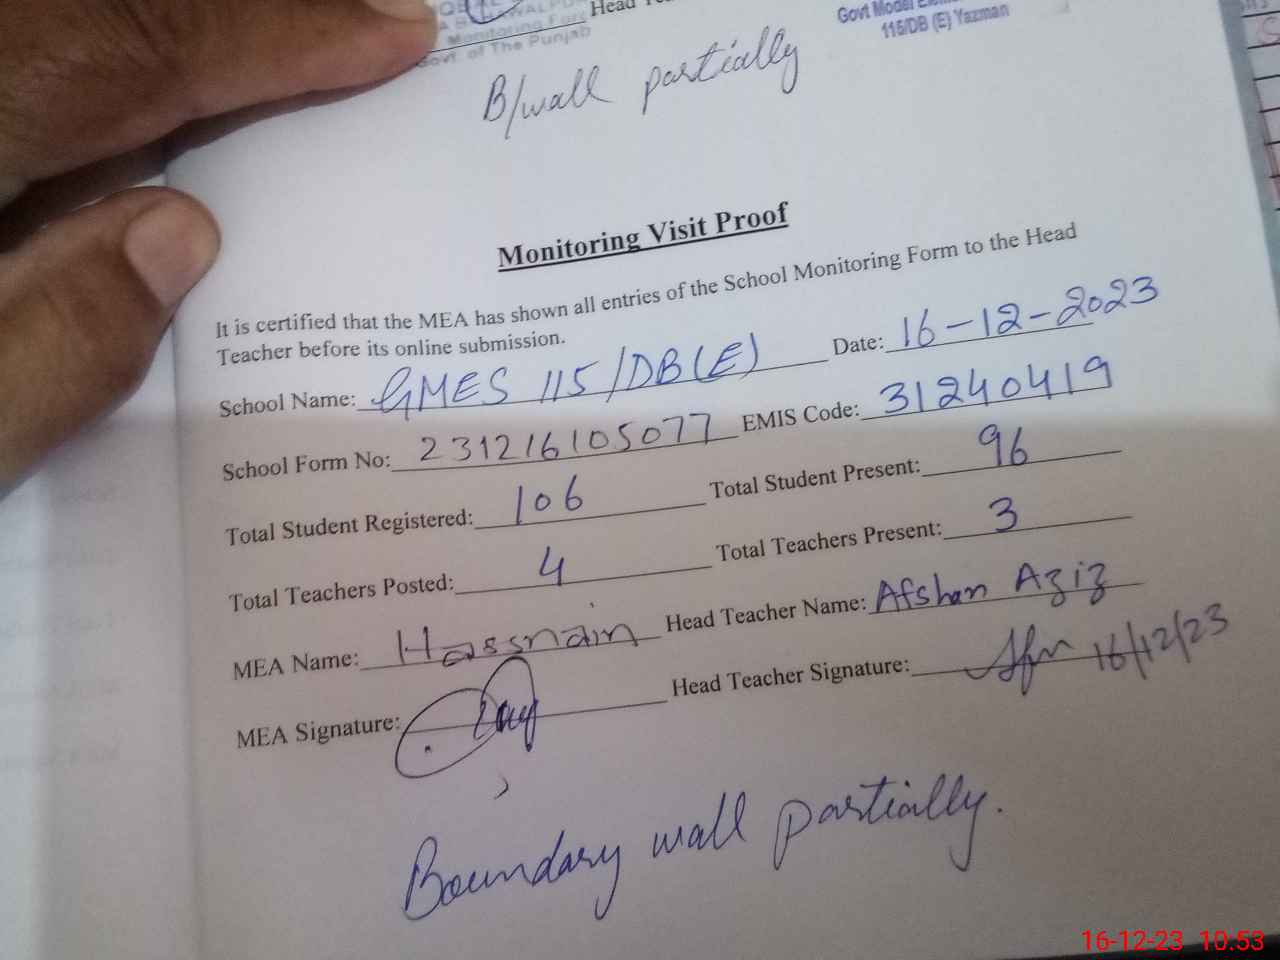 Monitoring Force
Govt. of The Punjab
Head
Govt Model
115/DB (E) Yazman
B/wall partially
Monitoring Visit Proof
It is certified that the MEA has shown all entries of the School Monitoring Form to the Head
Teacher before its online submission.
School Name: GMES 115/DB(E) Date: 16-12-2023
School Form No: 231216105077 EMIS Code: 31240419
Total Student Registered: 106 Total Student Present: 96
Total Teachers Posted: 4 Total Teachers Present: 3
MEA Name: Hassnain Head Teacher Name: Afshan Aziz
MEA Signature: Head Teacher Signature: 16/12/23
Boundary wall partially.
16-12-23 10:53